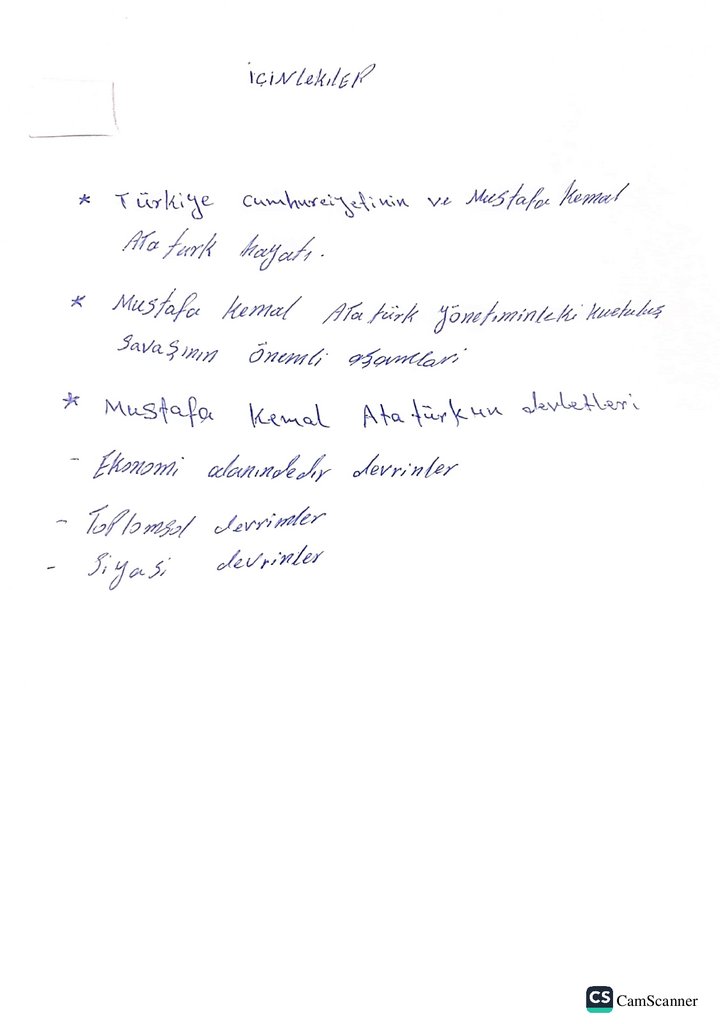 İÇİNLEKİLER
* Türkiye cumhureiyetinin ve Mustafa Kemal
Ata turk hayatı.
* Mustafa Kemal Ata türk yönetiminleki kurtuluş
Savaşının önemli aşamaları
* Mustafa Kemal Ata türkün devletleri
- Ekonomi alanındedır devrinler
- Toplomsol devrimler
- Siyasi devrinler
CS CamScanner